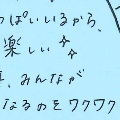 っぱいいるから、
楽しい✨
、みんなが
なるのをワクワク